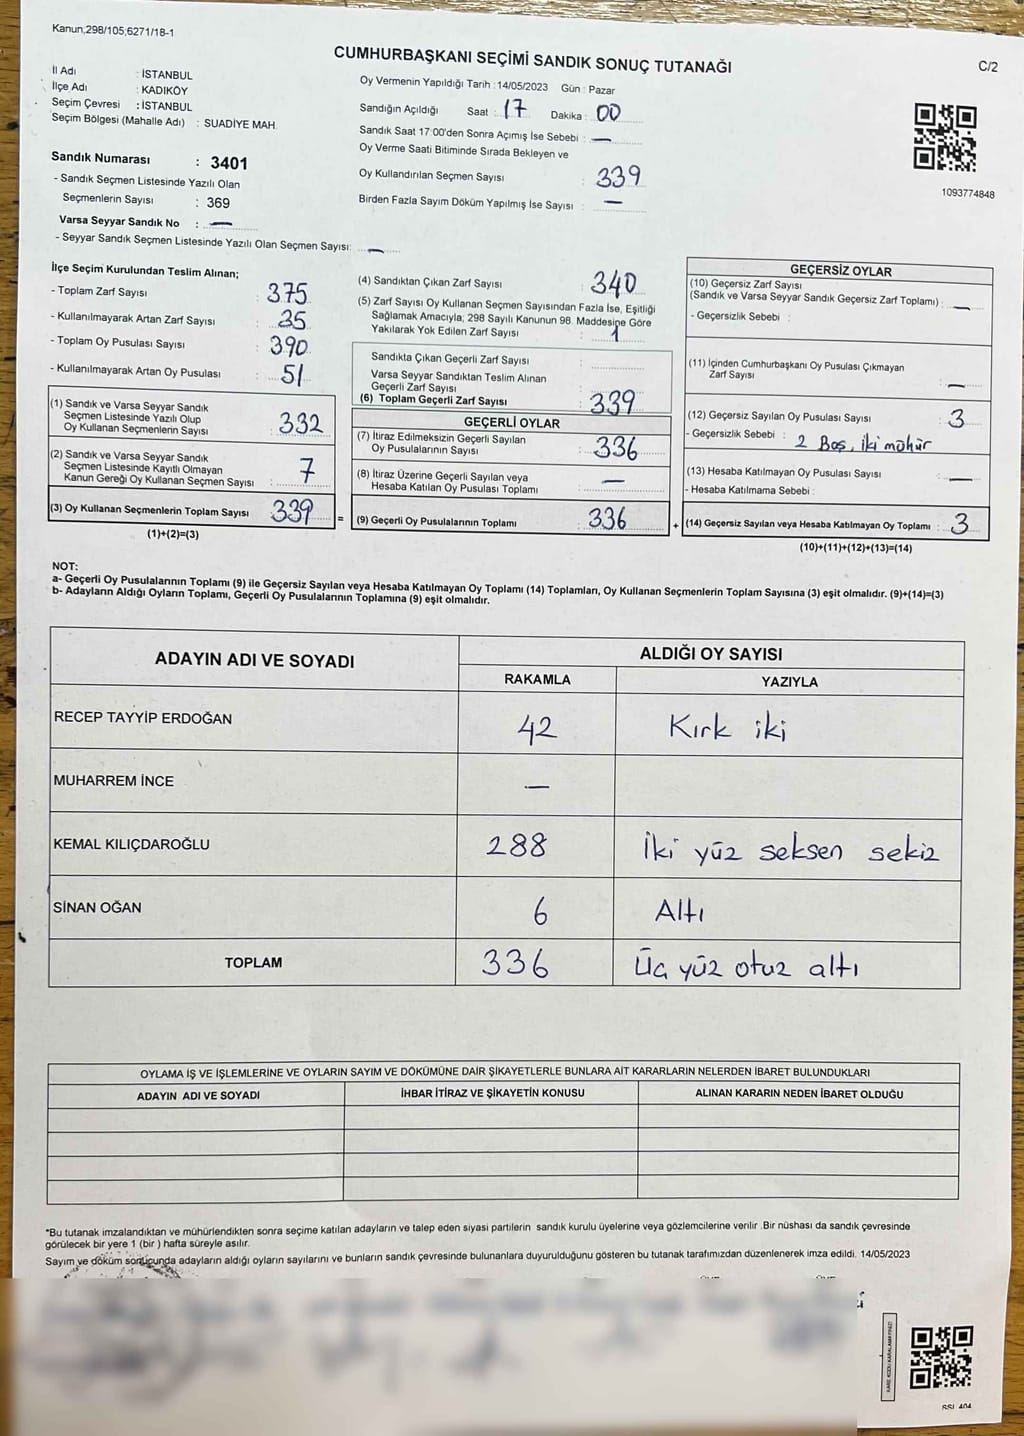 Kanun,298/105,6271/18-1
CUMHURBAŞKANI SEÇİMİ SANDIK SONUÇ TUTANAĞI
C/2
İl Adı : İSTANBUL
İlçe Adı : KADIKÖY
Seçim Çevresi : İSTANBUL
Seçim Bölgesi (Mahalle Adı) : SUADİYE MAH.
Sandık Numarası : 3401
- Sandık Seçmen Listesinde Yazılı Olan
Seçmenlerin Sayısı : 369
Varsa Seyyar Sandık No : —
- Seyyar Sandık Seçmen Listesinde Yazılı Olan Seçmen Sayısı: —
Oy Vermenin Yapıldığı Tarih : 14/05/2023 Gün : Pazar
Sandığın Açıldığı Saat : 17 Dakika : 00
Sandık Saat 17:00'den Sonra Açımış İse Sebebi : —
Oy Verme Saati Bitiminde Sırada Bekleyen ve
Oy Kullandırılan Seçmen Sayısı : 339
Birden Fazla Sayım Döküm Yapılmış İse Sayısı : —
1093774848
İlçe Seçim Kurulundan Teslim Alınan;
- Toplam Zarf Sayısı : 375
- Kullanılmayarak Artan Zarf Sayısı : 35
- Toplam Oy Pusulası Sayısı : 390
- Kullanılmayarak Artan Oy Pusulası : 51
(1) Sandık ve Varsa Seyyar Sandık
Seçmen Listesinde Yazılı Olup
Oy Kullanan Seçmenlerin Sayısı : 332
(2) Sandık ve Varsa Seyyar Sandık
Seçmen Listesinde Kayıtlı Olmayan
Kanun Gereği Oy Kullanan Seçmen Sayısı : 7
(3) Oy Kullanan Seçmenlerin Toplam Sayısı : 339
(1)+(2)=(3)
(4) Sandıktan Çıkan Zarf Sayısı : 340
(5) Zarf Sayısı Oy Kullanan Seçmen Sayısından Fazla İse, Eşitliği
Sağlamak Amacıyla; 298 Sayılı Kanunun 98. Maddesine Göre
Yakılarak Yok Edilen Zarf Sayısı : 1
Sandıkta Çıkan Geçerli Zarf Sayısı :
Varsa Seyyar Sandıktan Teslim Alınan
Geçerli Zarf Sayısı :
(6) Toplam Geçerli Zarf Sayısı : 339
GEÇERLİ OYLAR
(7) İtiraz Edilmeksizin Geçerli Sayılan
Oy Pusulalarının Sayısı : 336
(8) İtiraz Üzerine Geçerli Sayılan veya
Hesaba Katılan Oy Pusulası Toplamı : —
= (9) Geçerli Oy Pusulalarının Toplamı : 336
GEÇERSİZ OYLAR
(10) Geçersiz Zarf Sayısı
(Sandık ve Varsa Seyyar Sandık Geçersiz Zarf Toplamı) : —
- Geçersizlik Sebebi :
(11) İçinden Cumhurbaşkanı Oy Pusulası Çıkmayan
Zarf Sayısı : —
(12) Geçersiz Sayılan Oy Pusulası Sayısı : 3
- Geçersizlik Sebebi : 2 Boş, iki mühür
(13) Hesaba Katılmayan Oy Pusulası Sayısı : —
- Hesaba Katılmama Sebebi :
+ (14) Geçersiz Sayılan veya Hesaba Katılmayan Oy Toplamı : 3
(10)+(11)+(12)+(13)=(14)
NOT:
a- Geçerli Oy Pusulalarının Toplamı (9) ile Geçersiz Sayılan veya Hesaba Katılmayan Oy Toplamı (14) Toplamları, Oy Kullanan Seçmenlerin Toplam Sayısına (3) eşit olmalıdır. (9)+(14)=(3)
b- Adayların Aldığı Oyların Toplamı, Geçerli Oy Pusulalarının Toplamına (9) eşit olmalıdır.
ADAYIN ADI VE SOYADI ALDIĞI OY SAYISI
RAKAMLA YAZIYLA
RECEP TAYYİP ERDOĞAN 42 Kırk iki
MUHARREM İNCE —
KEMAL KILIÇDAROĞLU 288 İki yüz seksen sekiz
SİNAN OĞAN 6 Altı
TOPLAM 336 Üç yüz otuz altı
OYLAMA İŞ VE İŞLEMLERİNE VE OYLARIN SAYIM VE DÖKÜMÜNE DAİR ŞİKAYETLERLE BUNLARA AİT KARARLARIN NELERDEN İBARET BULUNDUKLARI
ADAYIN ADI VE SOYADI İHBAR İTİRAZ VE ŞİKAYETİN KONUSU ALINAN KARARIN NEDEN İBARET OLDUĞU
*Bu tutanak imzalandıktan ve mühürlendikten sonra seçime katılan adayların ve talep eden siyasi partilerin sandık kurulu üyelerine veya gözlemcilerine verilir .Bir nüshası da sandık çevresinde
görülecek bir yere 1 (bir ) hafta süreyle asılır.
Sayım ve döküm sonucunda adayların aldığı oyların sayılarını ve bunların sandık çevresinde bulunanlara duyurulduğunu gösteren bu tutanak tarafımızdan düzenlenerek imza edildi. 14/05/2023
KARE KODU KARALAMAYINIZ!